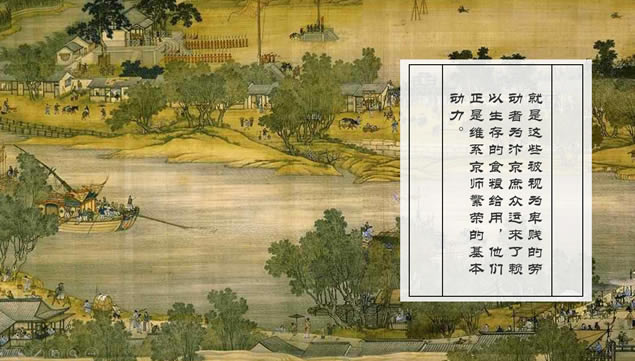 就是这些被视为卑贱的劳
动者为汴京庶众运来了赖
以生存的食粮给用，他们
正是维系京师繁荣的基本
动力。